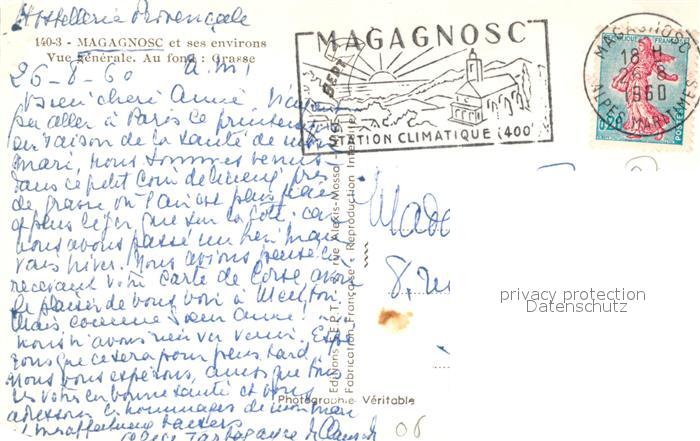 Hostellerie Provençale
140-3 - MAGAGNOSC et ses environs
Vue générale. Au fond : Grasse
26-8-60
Bien chère Amie, N'ayant
pu aller à Paris ce printemps
en raison de la santé de mon
mari, nous sommes venus
dans ce petit coin de
de Grasse où l'air est plus
et plus léger que sur la côte, car
nous avons passé un bien mau
vais hiver. Nous avions pensé en
recevant votre carte de Corse avoir
le plaisir de vous voir à Menton,
mais comme Sœur Anne!
nous n'avons rien vu venir. Espé
rons que ce sera pour plus tard,
Nous vous espérons, ainsi que tous
les vôtres en bonne santé et vous
adressons les hommages de mon mari
affectueux baisers
MAGAGNOSC
STATION CLIMATIQUE (400
MAGAGNOSC
18 H
26-8
1960
ALPES MARITIMES
REPUBLIQUE FRANÇAISE
0,20
POSTES
Editions S.E.P.T.
rue Alexis-Mossa
Fabrication Française - Reproduction Interdite
Mada
8, rue
privacy protection
Datenschutz
Photographie Véritable
06